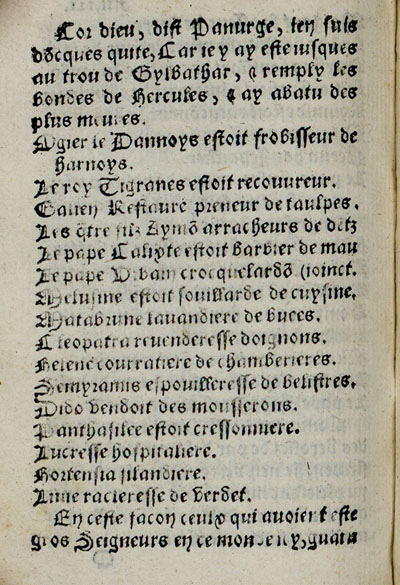 Cor dieu, dist Panurge, ien suis
dõcques quite, Car ie y ay este iusques
au trou de Gylbathar, & remply les
bondes de Hercules, & ay abatu des
plus meures.
Ogier le Dannoys estoit frobisseur de
harnoys.
Le roy Tigranes estoit recouureur.
Galien Restauré preneur de taulpes.
Les q̃tre filz Aymõ arracheurs de dẽtz
Le pape Calixte estoit barbier de mau
Le pape Urbain crocquelardõ (ioinct.
Melusine estoit souillarde de cuysine.
Matabrune lauandiere de buees.
Cleopatra reuenderesse doignons.
Helene courratiere de chamberieres.
Semyramis espouilleresse de belistres.
Dido vendoit des mousserons.
Panthasilee estoit cressonniere.
Lucresse hospitaliere.
Hortensia filandiere.
Liuie racleresse de verdet.
En ceste facon ceulx qui auoient este
gros Seigneurs en ce monde icy,